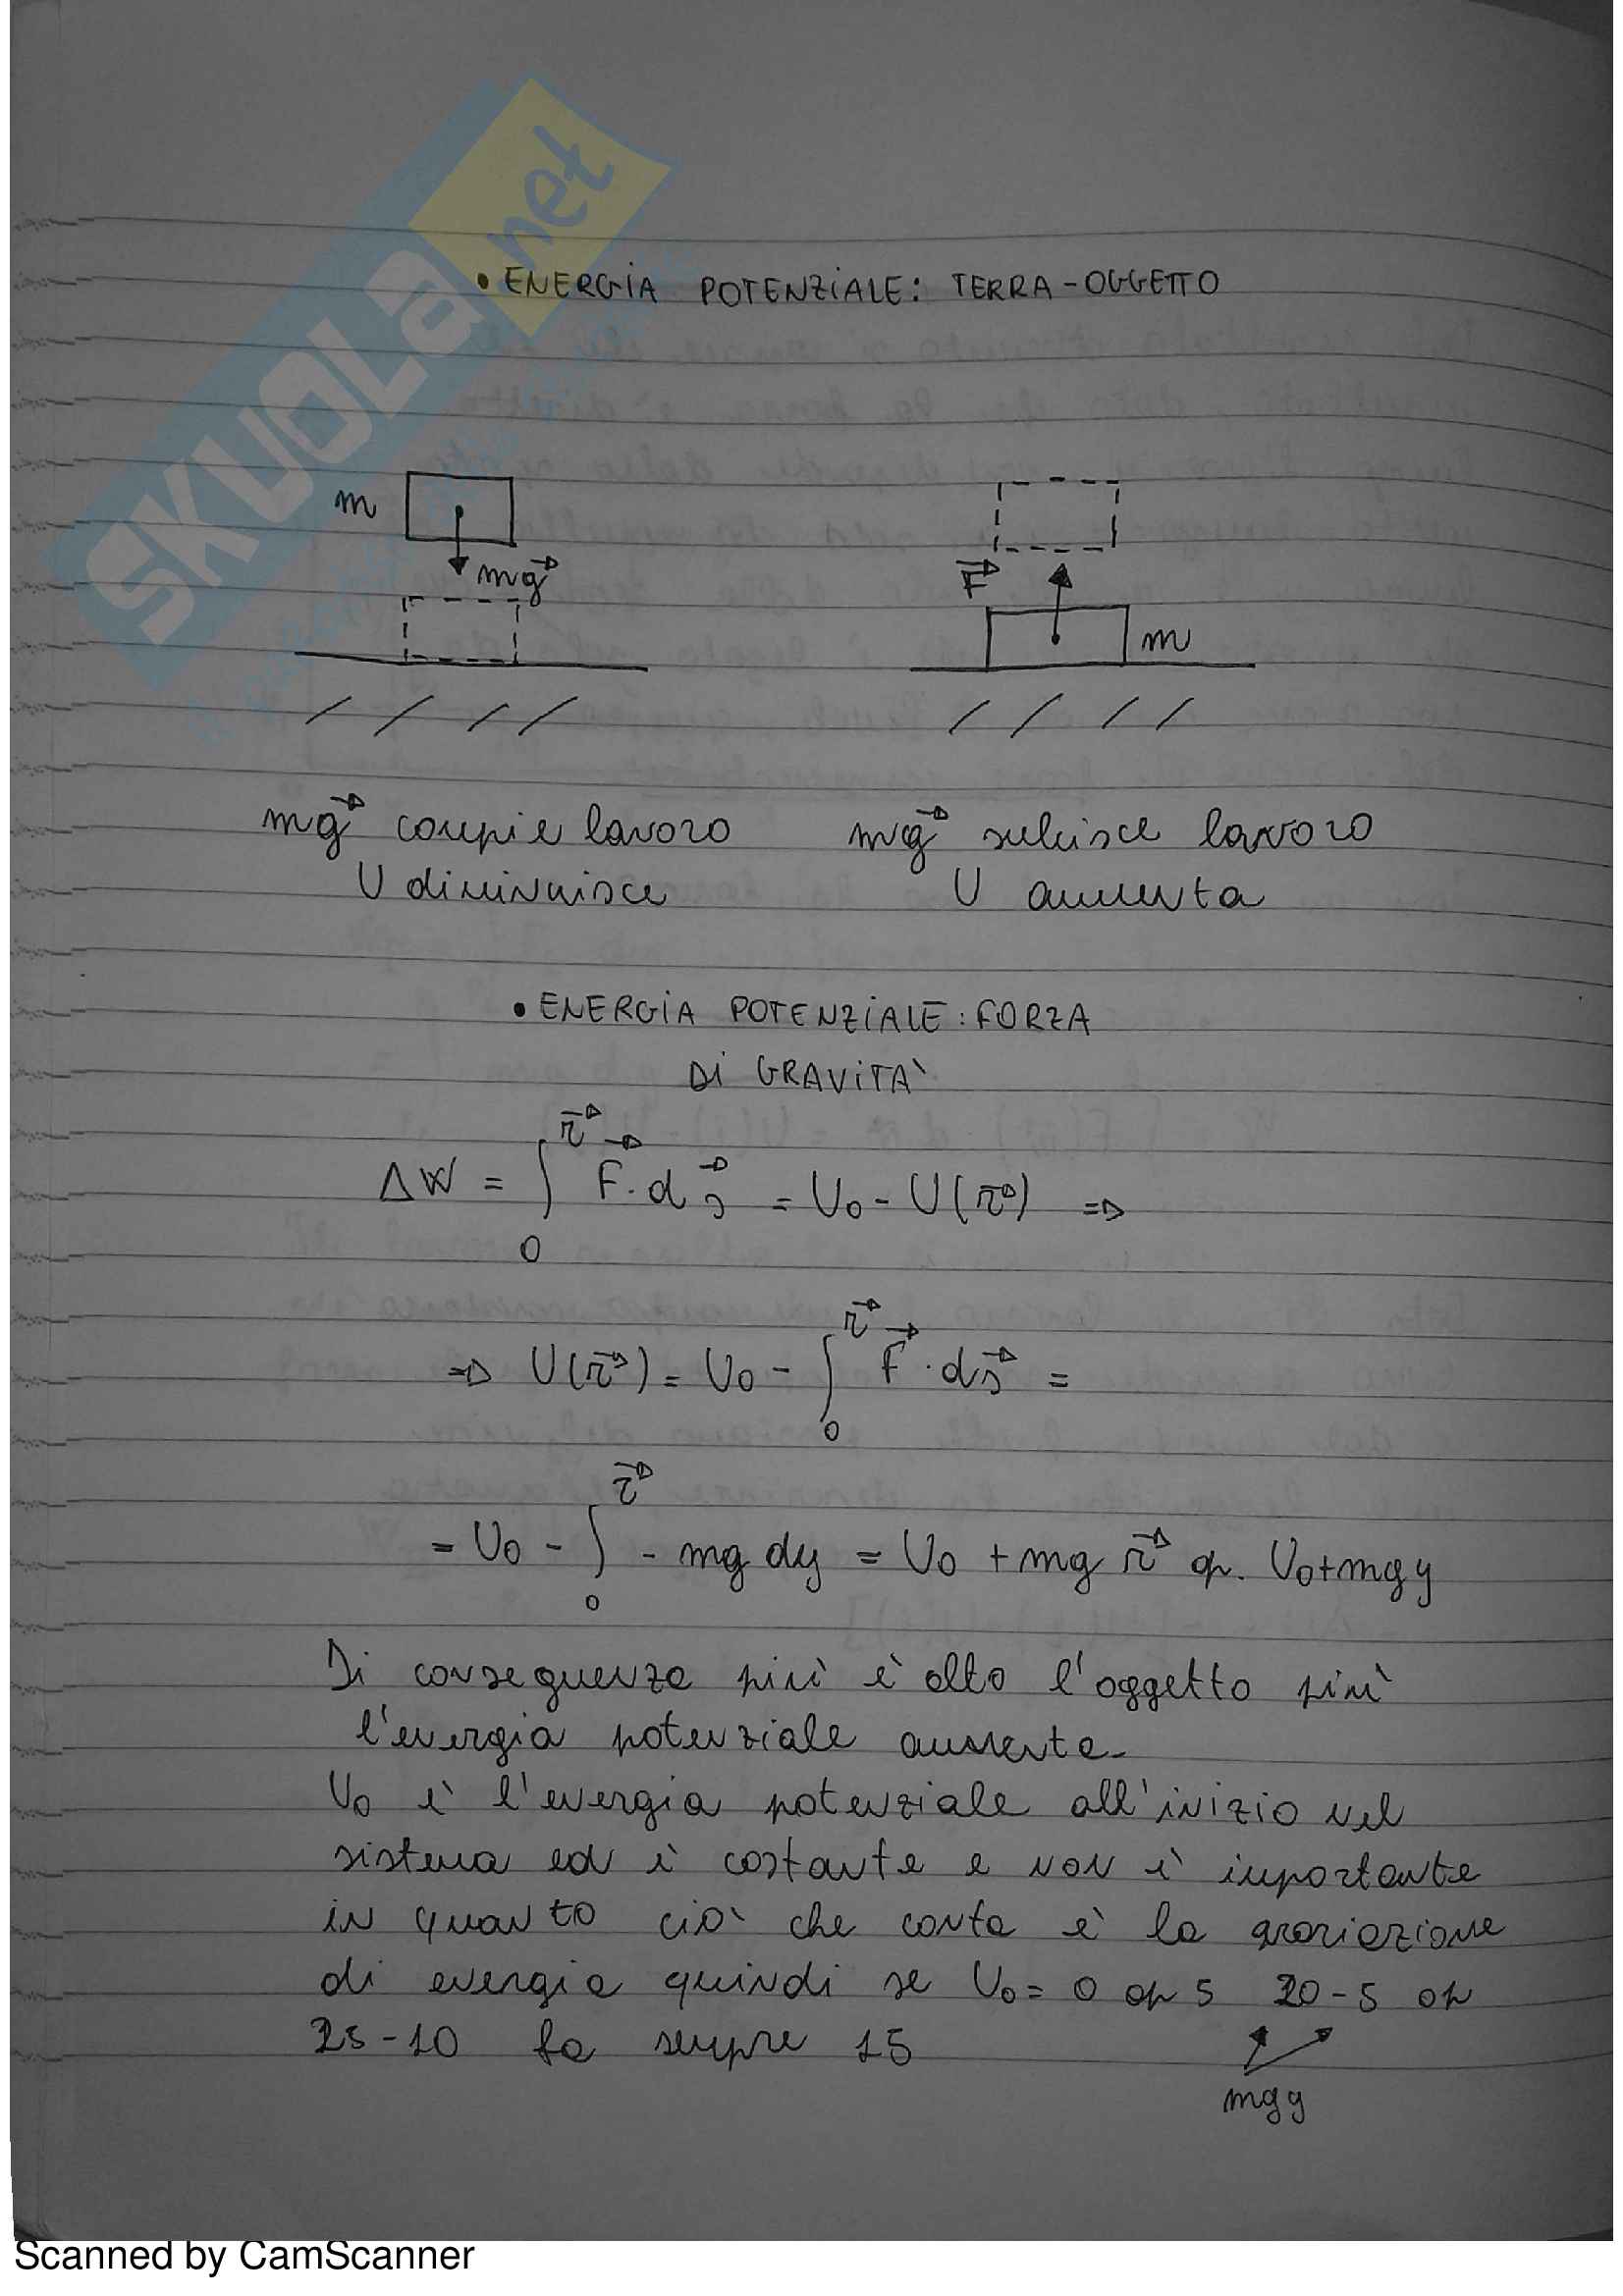 SKUOLA.net
• ENERGIA POTENZIALE: TERRA-OGGETTO
m
mg⃗
F⃗
m
mg⃗ compie lavoro
U diminuisce
mg⃗ subisce lavoro
U aumenta
• ENERGIA POTENZIALE: FORZA
DI GRAVITA'
ΔW = ∫₀^r⃗ F⃗·ds⃗ = U₀ - U(r⃗) ⇒
⇒ U(r⃗) = U₀ - ∫₀^r⃗ F⃗·ds⃗ =
= U₀ - ∫₀^r⃗ - mg dy = U₀ + mg r⃗ op. U₀+mgy
Di conseguenza più è alto l'oggetto più
l'energia potenziale aumenta.
U₀ è l'energia potenziale all'inizio nel
sistema ed è costante e non è importante
in quanto ciò che conta è la variazione
di energia quindi se U₀ = 0 op 5 20-5 op
25-10 fa sempre 15
mgy
Scanned by CamScanner